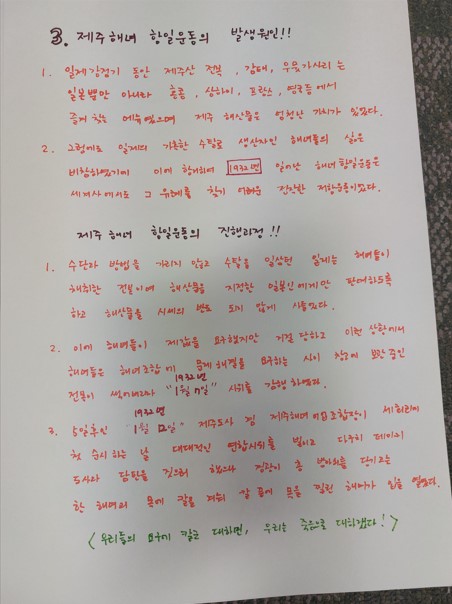 3. 제주해녀 항일운동의 발생원인!!
1. 일제강점기 동안 제주산 전복, 감태, 우뭇가사리는
일본뿐만 아니라 홍콩, 상하이, 프랑스, 영국등에서
즐겨 찾는 메뉴였으며 제주 해산물은 엄청난 가치가 있었다.
2. 그럼에도 일제의 가혹한 수탈로 생산자인 해녀들의 삶은
비참하였기에 이에 항거하며 1932년 일어난 해녀항일운동은
세계사에서도 그 유례를 찾기 어려운 저항운동이었다.
제주해녀 항일운동의 진행과정!!
1. 수단과 방법을 가리지 않고 수탈을 일삼던 일제는 해녀들이
채취한 전복이며 해산물을 지정한 일본인에게만 판매하도록
하고 해산물을 시세의 반도 되지 않게 사들였다.
2. 이에 해녀들이 제값을 요구했지만 거절당하고 이런 상황에서
해녀들은 해녀조합에 문제해결을 요구하는 시위 중
전복이 썩어버리자 "1932년 1월 7일" 시위를 감행하였다.
3. 5일후인 "1932년 1월 12일" 제주도사 겸 제주해녀 조합장이 세화리에
첫 순시하는 날 대대적인 연합시위를 벌이고 다구치 데이키
도사와 담판을 짓으려 하였다 경관이 총 방아쇠를 당기고는
한 해녀의 목에 칼을 겨눠 칼 끝에 목을 찔린 해녀가 입을 열었다.
<우리들의 요구에 칼로 대하면, 우리는 죽음으로 대하겠다!>